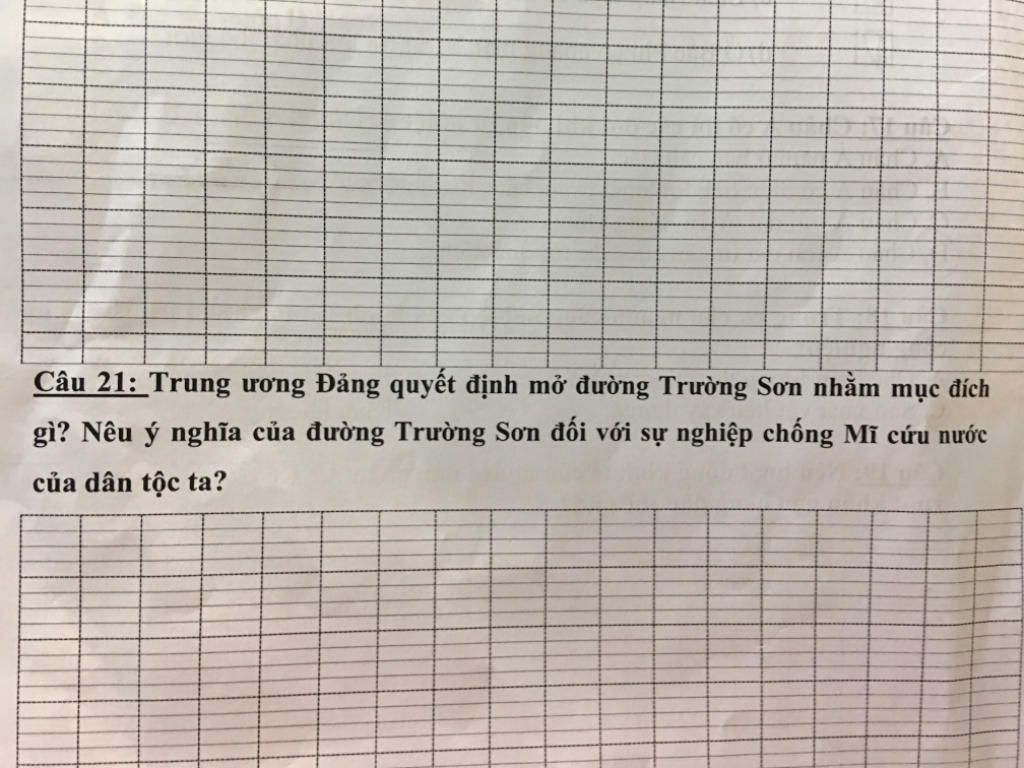 Câu 21: Trung ương Đảng quyết định mở đường Trường Sơn nhằm mục đích
gì? Nêu ý nghĩa của đường Trường Sơn đối với sự nghiệp chống Mĩ cứu nước
của dân tộc ta?